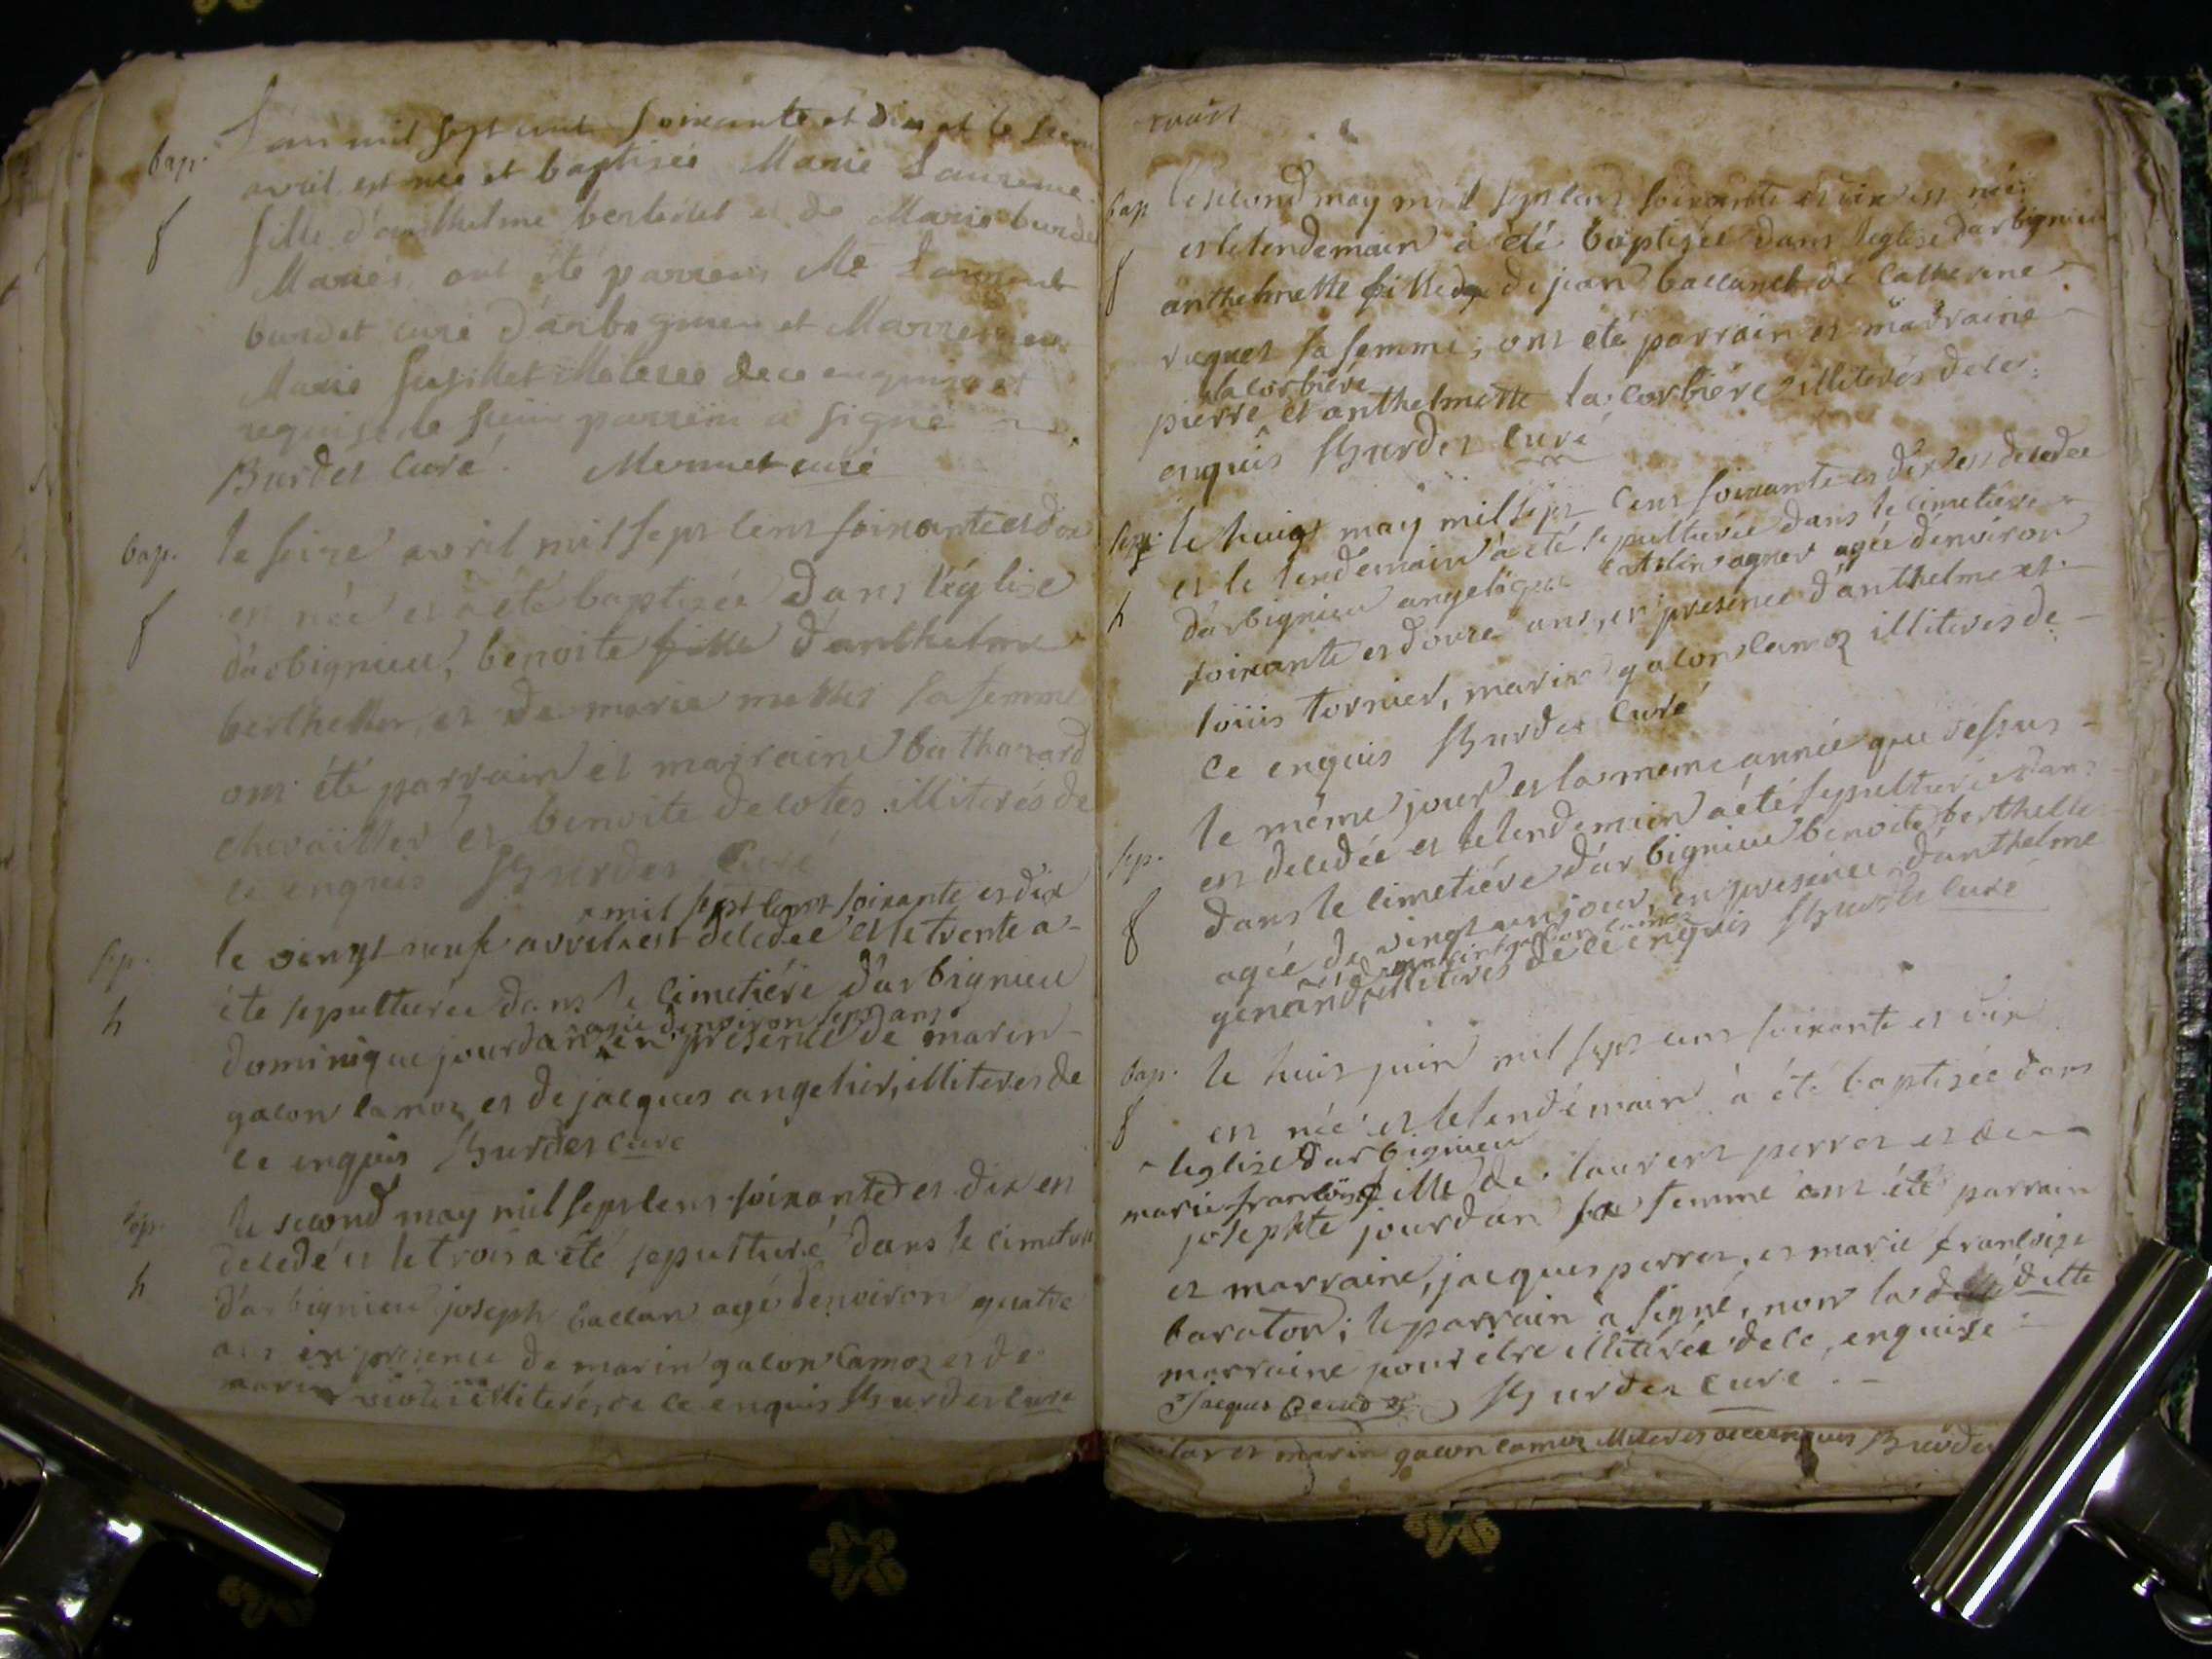 bap. L'an mil sept cent soixante et dix et le
avril est nee et baptisée Marie Laurence
f fille d'anthelme berthelet et de Marie burdet
Mariés, ont été parrein Me Laurent
burdet curé d'arbignieu et Marreine
Marie de ce enquise et
requise le sieur parrein a signé
Burdet Curé. Mermet curé
bap. le seize avril mil sept cens soixante et dix
f en née et a été baptisée dans l'église
d'arbignieu, benoite fille d'anthelme
berthellet, et de marie sa femme
ont été parrain et marraine bathazard
chevaillier et benoite decotes illiterés de
ce enquis Burdet Curé
mil sept cens soixante et dix
sep. le vingt neuf avril est decedée et le trente a
h été sepulturée dans le cimetiére d'arbignieu
agée d'environ sept ans
dominique jourdan en presence de marin
galon lamoz et de jacques angelier, illiteres de
ce enquis Burdet Curé
sep. le second may mil sept cens soixante et dix en
decedé et le trois a été sepulturé dans le cimetiere
h d'arbignieu joseph ballan agé d'environ quatre
ans en presence de marin galon lamoz et de
marin illiterés de ce enquis Burdet Curé
bap le second may mil sept cens soixante et dix est née
et le lendemain a été baptisée dans l'eglise d'arbignieu
f anthelmette fille de jean ballan et de Catherine
sa femme, ont été parrain et marraine
la corbiére
pierre et anthelmette la corbiére illiterés de ce
enquis Burdet Curé
sep. le huit may mil sept cens soixante et dix en decedée
et le lendemain a été sepulturée dans le cimetiere
h d'arbignieu angelique agée d'environ
soixante et douze ans, en presence d'anthelme et
loüis tornier, marin galon lamoz illiteres de
ce enquis Burdet Curé
le même jour et la meme année que dessus
sep. en decedée et le lendemain a été sepulturée dans
dans le cimetiére d'arbignieu benoite berthellet
f agée de vingt un jour, en presence d'anthelme
et de marin galon lamoz
genand, illiteres de ce enquis Burdet Curé
bap. le huit juin mil sept cens soixante et dix
f en née et le lendemain a été baptisée dans
l'eglise d'arbignieu
marie françoise fille de laurent perret et de
josephte jourdan sa femme ont été parrain
et marraine, jacques perret, et marie françoise
baraton; le parrain a signé, non la ditte
marraine pour etre illiterée de ce enquise
Jacques Burdet Curé
et marin galon lamoz illiteres de ce enquis Burdet